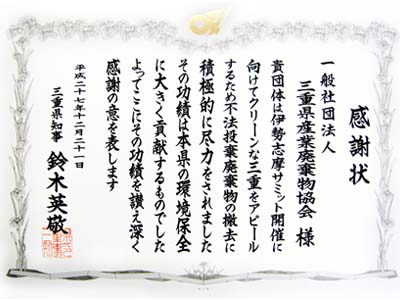 感謝状
一般社団法人
三重県産業廃棄物協会 様
貴団体は伊勢志摩サミット開催に
向けてクリーンな三重をアピール
するため不法投棄廃棄物の撤去に
積極的に尽力をされました
その功績は本県の環境保全
に大きく貢献するものでした
よってここにその功績を讃え深く
感謝の意を表します
平成二十七年十二月二十一日
三重県知事 鈴木英敬